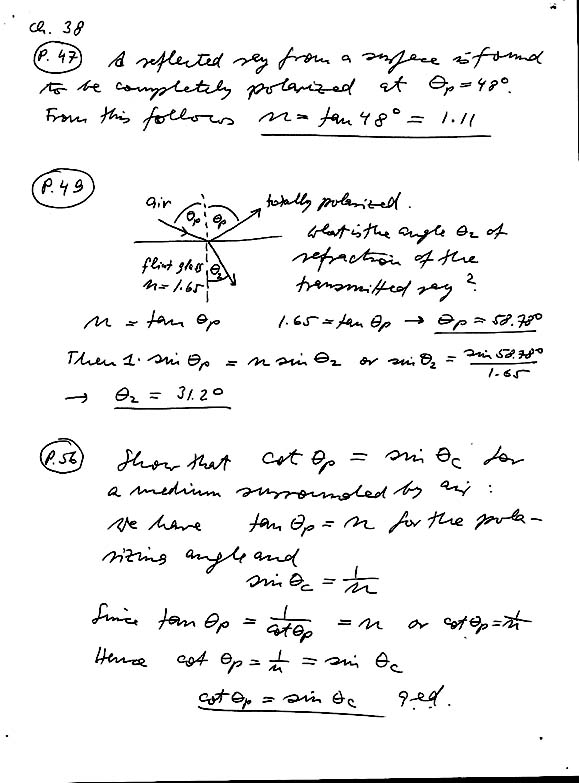 Ch. 38
P. 47 A reflected ray from a surface is found
to be completely polarized at θp = 48°.
From this follows n = tan 48° = 1.11
P. 49
air θp θp totally polarized.
What is the angle θ2 of
flint glass θ2 refraction of the
n = 1.65 transmitted ray?
n = tan θp 1.65 = tan θp → θp = 58.78°
Then 1· sin θp = n sin θ2 or sin θ2 = sin 58.78° / 1.65
→ θ2 = 31.2°
P. 56 Show that cot θp = sin θc for
a medium surrounded by air :
We have tan θp = n for the pola-
rizing angle and
sin θc = 1/n
Since tan θp = 1/cot θp = n or cot θp = 1/n
Hence cot θp = 1/n = sin θc
cot θp = sin θc q.e.d.